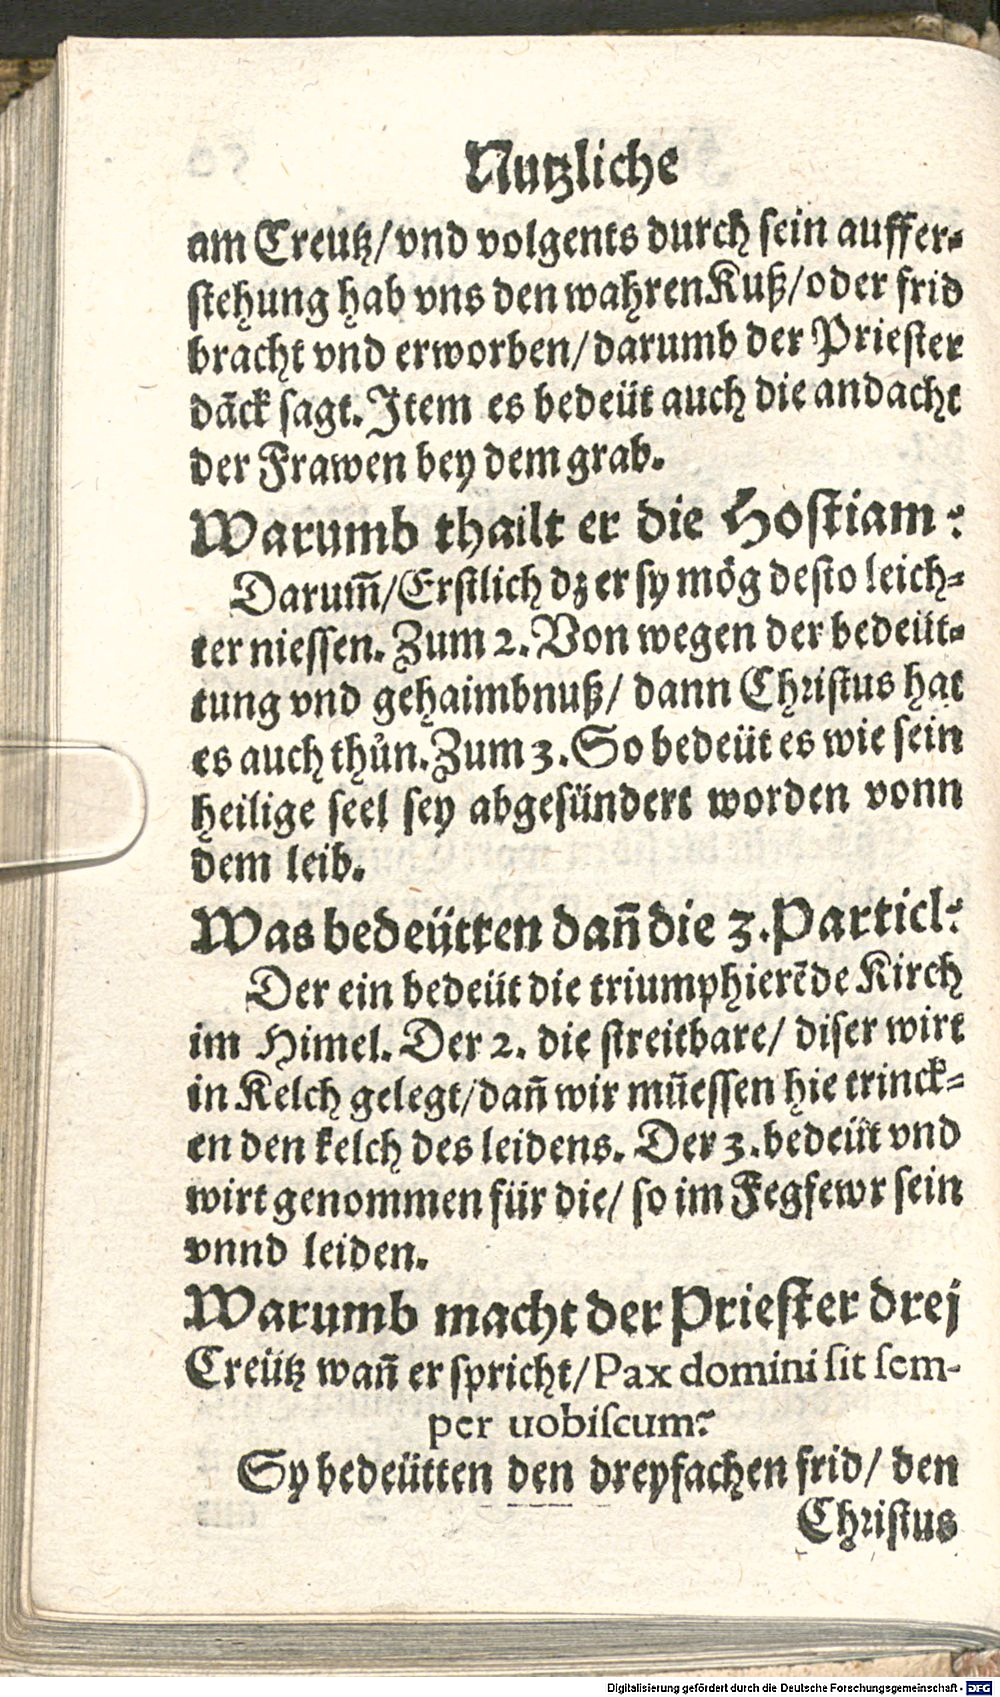 Nutzliche
am Creutz/vnd volgents durch sein auffer-
stehung hab vns den wahren Kuß/oder frid
bracht vnd erworben/darumb der Priester
dāck sagt. Item es bedeüt auch die andacht
der Frawen bey dem grab.
Warumb thailt er die Hostiam?
Darum̄/Erstlich dz er sy mög desto leich-
ter niessen. Zum 2. Von wegen der bedeüt-
tung vnd gehaimbnuß/ dann Christus hat
es auch thůn. Zum 3. So bedeüt es wie sein
heilige seel sey abgesündert worden vonn
dem leib.
Was bedeütten dan̄ die 3. Particl?
Der ein bedeüt die triumphierēde Kirch
im Himel. Der 2. die streitbare/ diser wirt
in Kelch gelegt/dan̄ wir müessen hie trinck-
en den kelch des leidens. Der 3. bedeüt vnd
wirt genommen für die/ so im Fegfewr sein
vnnd leiden.
Warumb macht der Priester drej
Creütz wan̄ er spricht/Pax domini sit sem-
per uobiscum?
Sy bedeütten den dreyfachen frid/ den
Christus
Digitalisierung gefördert durch die Deutsche Forschungsgemeinschaft - DFG